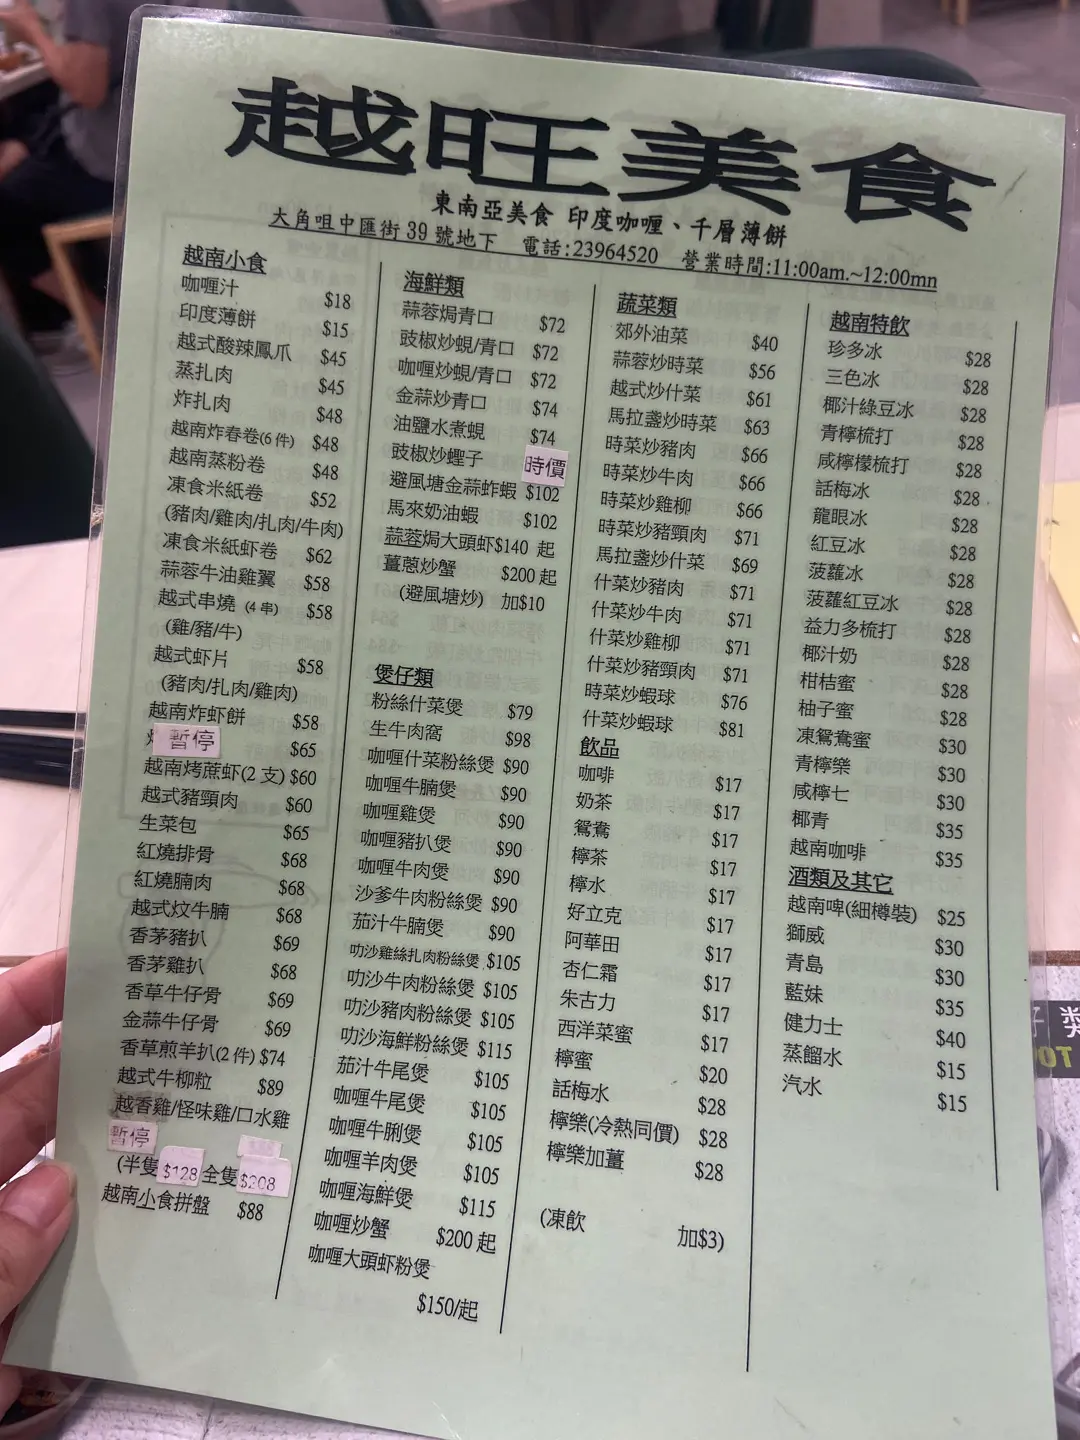 越旺美食
東南亞美食 印度咖喱、千層薄餅
大角咀中匯街 39 號地下 電話:23964520 營業時間:11:00am.~12:00mn
越南小食
咖喱汁 $18
印度薄餅 $15
越式酸辣鳳爪 $45
蒸扎肉 $45
炸扎肉 $48
越南炸春卷(6 件) $48
越南蒸粉卷 $48
凍食米紙卷 $52
(豬肉/雞肉/扎肉/牛肉)
凍食米紙虾卷 $62
蒜蓉牛油雞翼 $58
越式串燒 (4 串) $58
(雞/豬/牛)
越式虾片 $58
(豬肉/扎肉/雞肉)
越南炸虾餅 $58
暫停 $65
越南烤蔗虾(2 支) $60
越式豬頸肉 $60
生菜包 $65
紅燒排骨 $68
紅燒腩肉 $68
越式炆牛腩 $68
香茅豬扒 $69
香茅雞扒 $68
香草牛仔骨 $69
金蒜牛仔骨 $69
香草煎羊扒(2 件) $74
越式牛柳粒 $89
越香雞/怪味雞/口水雞
暫停
(半隻 $128 全隻 $208
越南小食拼盤 $88
海鮮類
蒜蓉焗青口 $72
豉椒炒蜆/青口 $72
咖喱炒蜆/青口 $72
金蒜炒青口 $74
油鹽水煮蜆 $74
豉椒炒蟶子 時價
避風塘金蒜蚱蝦 $102
馬來奶油蝦 $102
蒜蓉焗大頭虾$140 起
薑蔥炒蟹 $200 起
(避風塘炒) 加$10
煲仔類
粉絲什菜煲 $79
生牛肉窩 $98
咖喱什菜粉絲煲 $90
咖喱牛腩煲 $90
咖喱雞煲 $90
咖喱豬扒煲 $90
咖喱牛肉煲 $90
沙爹牛肉粉絲煲 $90
茄汁牛腩煲 $90
叻沙雞絲扎肉粉絲煲 $105
叻沙牛肉粉絲煲 $105
叻沙豬肉粉絲煲 $105
叻沙海鮮粉絲煲 $115
茄汁牛尾煲 $105
咖喱牛尾煲 $105
咖喱牛脷煲 $105
咖喱羊肉煲 $105
咖喱海鮮煲 $115
咖喱炒蟹 $200 起
咖喱大頭虾粉煲
$150/起
蔬菜類
郊外油菜 $40
蒜蓉炒時菜 $56
越式炒什菜 $61
馬拉盞炒時菜 $63
時菜炒豬肉 $66
時菜炒牛肉 $66
時菜炒雞柳 $66
時菜炒豬頸肉 $71
馬拉盞炒什菜 $69
什菜炒豬肉 $71
什菜炒牛肉 $71
什菜炒雞柳 $71
什菜炒豬頸肉 $71
時菜炒蝦球 $76
什菜炒蝦球 $81
飲品
咖啡 $17
奶茶 $17
鴛鴦 $17
檸茶 $17
檸水 $17
好立克 $17
阿華田 $17
杏仁霜 $17
朱古力 $17
西洋菜蜜 $17
檸蜜 $20
話梅水 $28
檸樂(冷熱同價) $28
檸樂加薑 $28
(凍飲 加$3)
越南特飲
珍多冰 $28
三色冰 $28
椰汁綠豆冰 $28
青檸梳打 $28
咸檸檬梳打 $28
話梅冰 $28
龍眼冰 $28
紅豆冰 $28
菠蘿冰 $28
菠蘿紅豆冰 $28
益力多梳打 $28
椰汁奶 $28
柑桔蜜 $28
柚子蜜 $28
凍鴛鴦蜜 $30
青檸樂 $30
咸檸七 $30
椰青 $35
越南咖啡 $35
酒類及其它
越南啤(細樽裝) $25
獅威 $30
青島 $30
藍妹 $35
健力士 $40
蒸餾水 $15
汽水 $15